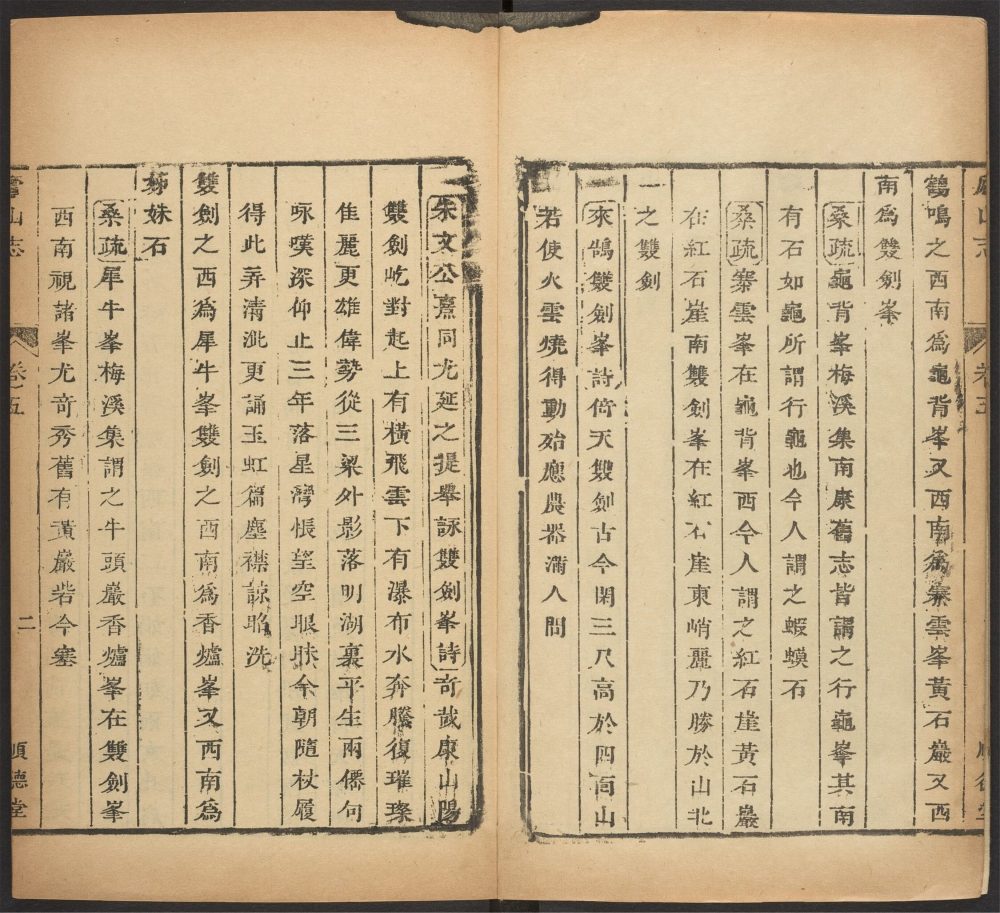 廬山志
卷五
順德堂
鶴鳴之西南為龜背峯又西南為寨雲峯黃石巖又西
南為雙劍峯
桑疏龜背峯梅溪集南康舊志皆謂之行龜峯其南
有石如龜所謂行龜也今人謂之蝦蟆石
桑疏寨雲峯在龜背峯西今人謂之紅石崖黃石巖
在紅石崖南雙劍峯在紅石崖東峭麗乃勝於山北
之雙劍
來鵠雙劍峯詩倚天雙劍古今閑三尺高於四面山
若使火雲燒得動始應農器滿人間
朱文公熹同尤延之提舉詠雙劍峯詩奇哉康山陽
雙劍屹對起上有橫飛雲下有瀑布水奔騰復璀璨
佳麗更雄偉勢從三梁外影落明湖裏平生兩僊句
咏嘆深仰止三年落星灣悵望空眼眯今朝隨杖屨
得此弄清泚更誦玉虹篇塵襟諒昭洗
雙劍之西為犀牛峯雙劍之西南為香爐峯又西南為
姊妹石
桑疏犀牛峯梅溪集謂之牛頭巖香爐峯在雙劍峯
西南視諸峯尤奇秀舊有黃巖砦今塞
廬山志
卷五
二
順德堂